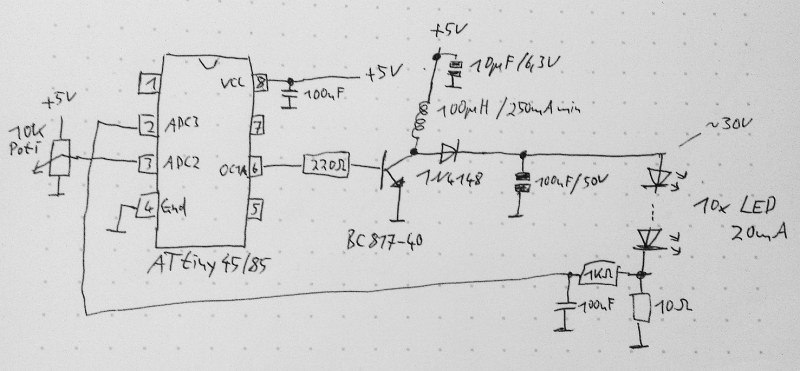 +5V
10µF/6,3V
100µH/250mA min
1
VCC
8
+5V
100nF
+5V
10K
Poti
2
ADC3
7
3
ADC2
OC1A
6
220Ω
4
Gnd
5
ATtiny 45/85
BC817-40
1N4148
100nF/50V
~30V
10x LED
20mA
1KΩ
100nF
10Ω